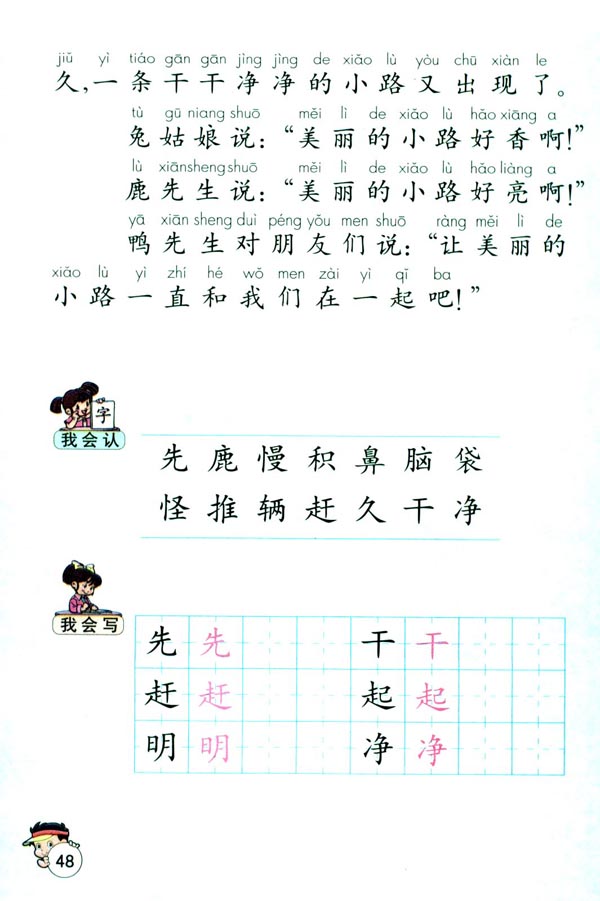 jiǔ yì tiáo gān gān jìng jìng de xiǎo lù yòu chū xiàn le
久,一条干干净净的小路又出现了。
tù gū niang shuō měi lì de xiǎo lù hǎo xiāng a
兔姑娘说:“美丽的小路好香啊!”
lù xiānsheng shuō měi lì de xiǎo lù hǎo liàng a
鹿先生说:“美丽的小路好亮啊!”
yā xiān sheng duì péng yǒu men shuō ràng měi lì de
鸭先生对朋友们说:“让美丽的
xiǎo lù yì zhí hé wǒ men zài yì qǐ ba
小路一直和我们在一起吧!”
字
我会认
先鹿慢积鼻脑袋
怪推辆赶久干净
我会写
先先 干干
赶赶 起起
明明 净净
48